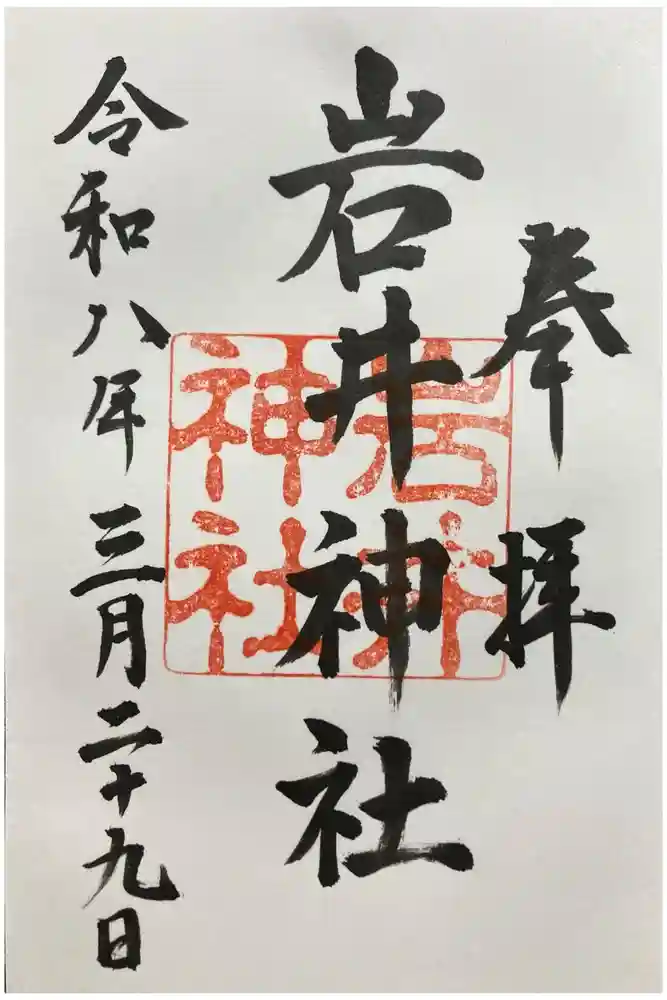 奉拝
岩井神社
岩井
神社
令和八年三月二十九日